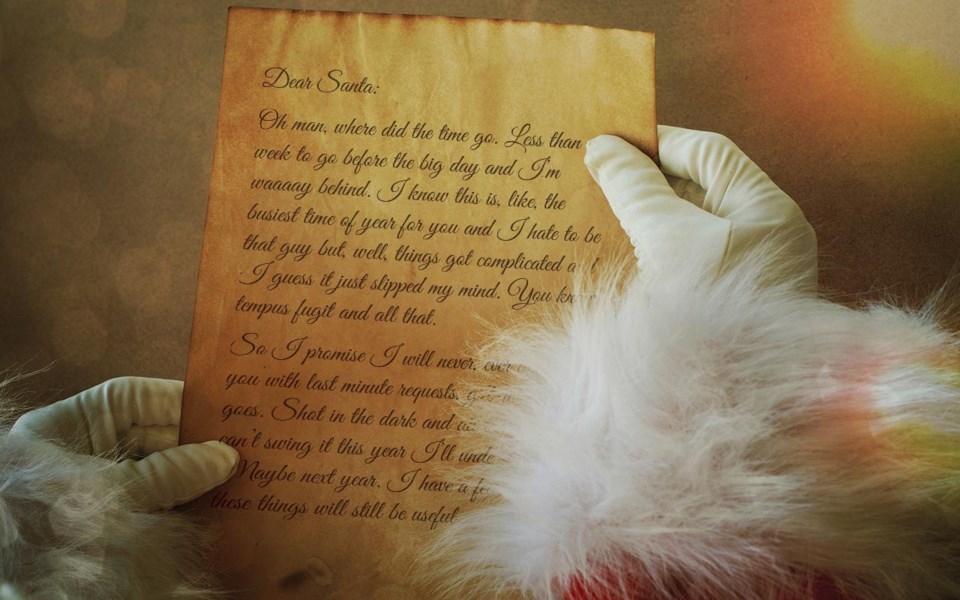 Dear Santa:
Oh man, where did the time go. Less than
week to go before the big day and I'm
waaaay behind. I know this is, like, the
busiest time of year for you and I hate to be
that guy but, well, things got complicated
I guess it just slipped my mind. You
tempus fugit and all that.
So I promise I will never, ever
you with last minute requests,
goes. Shot in the dark and
can't swing it this year I'll
Maybe next year. I have a
these things will still be useful